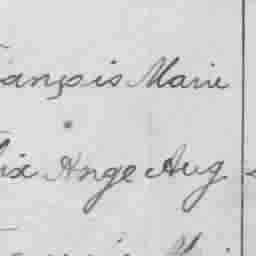 ançois Marie
ix Ange Aug